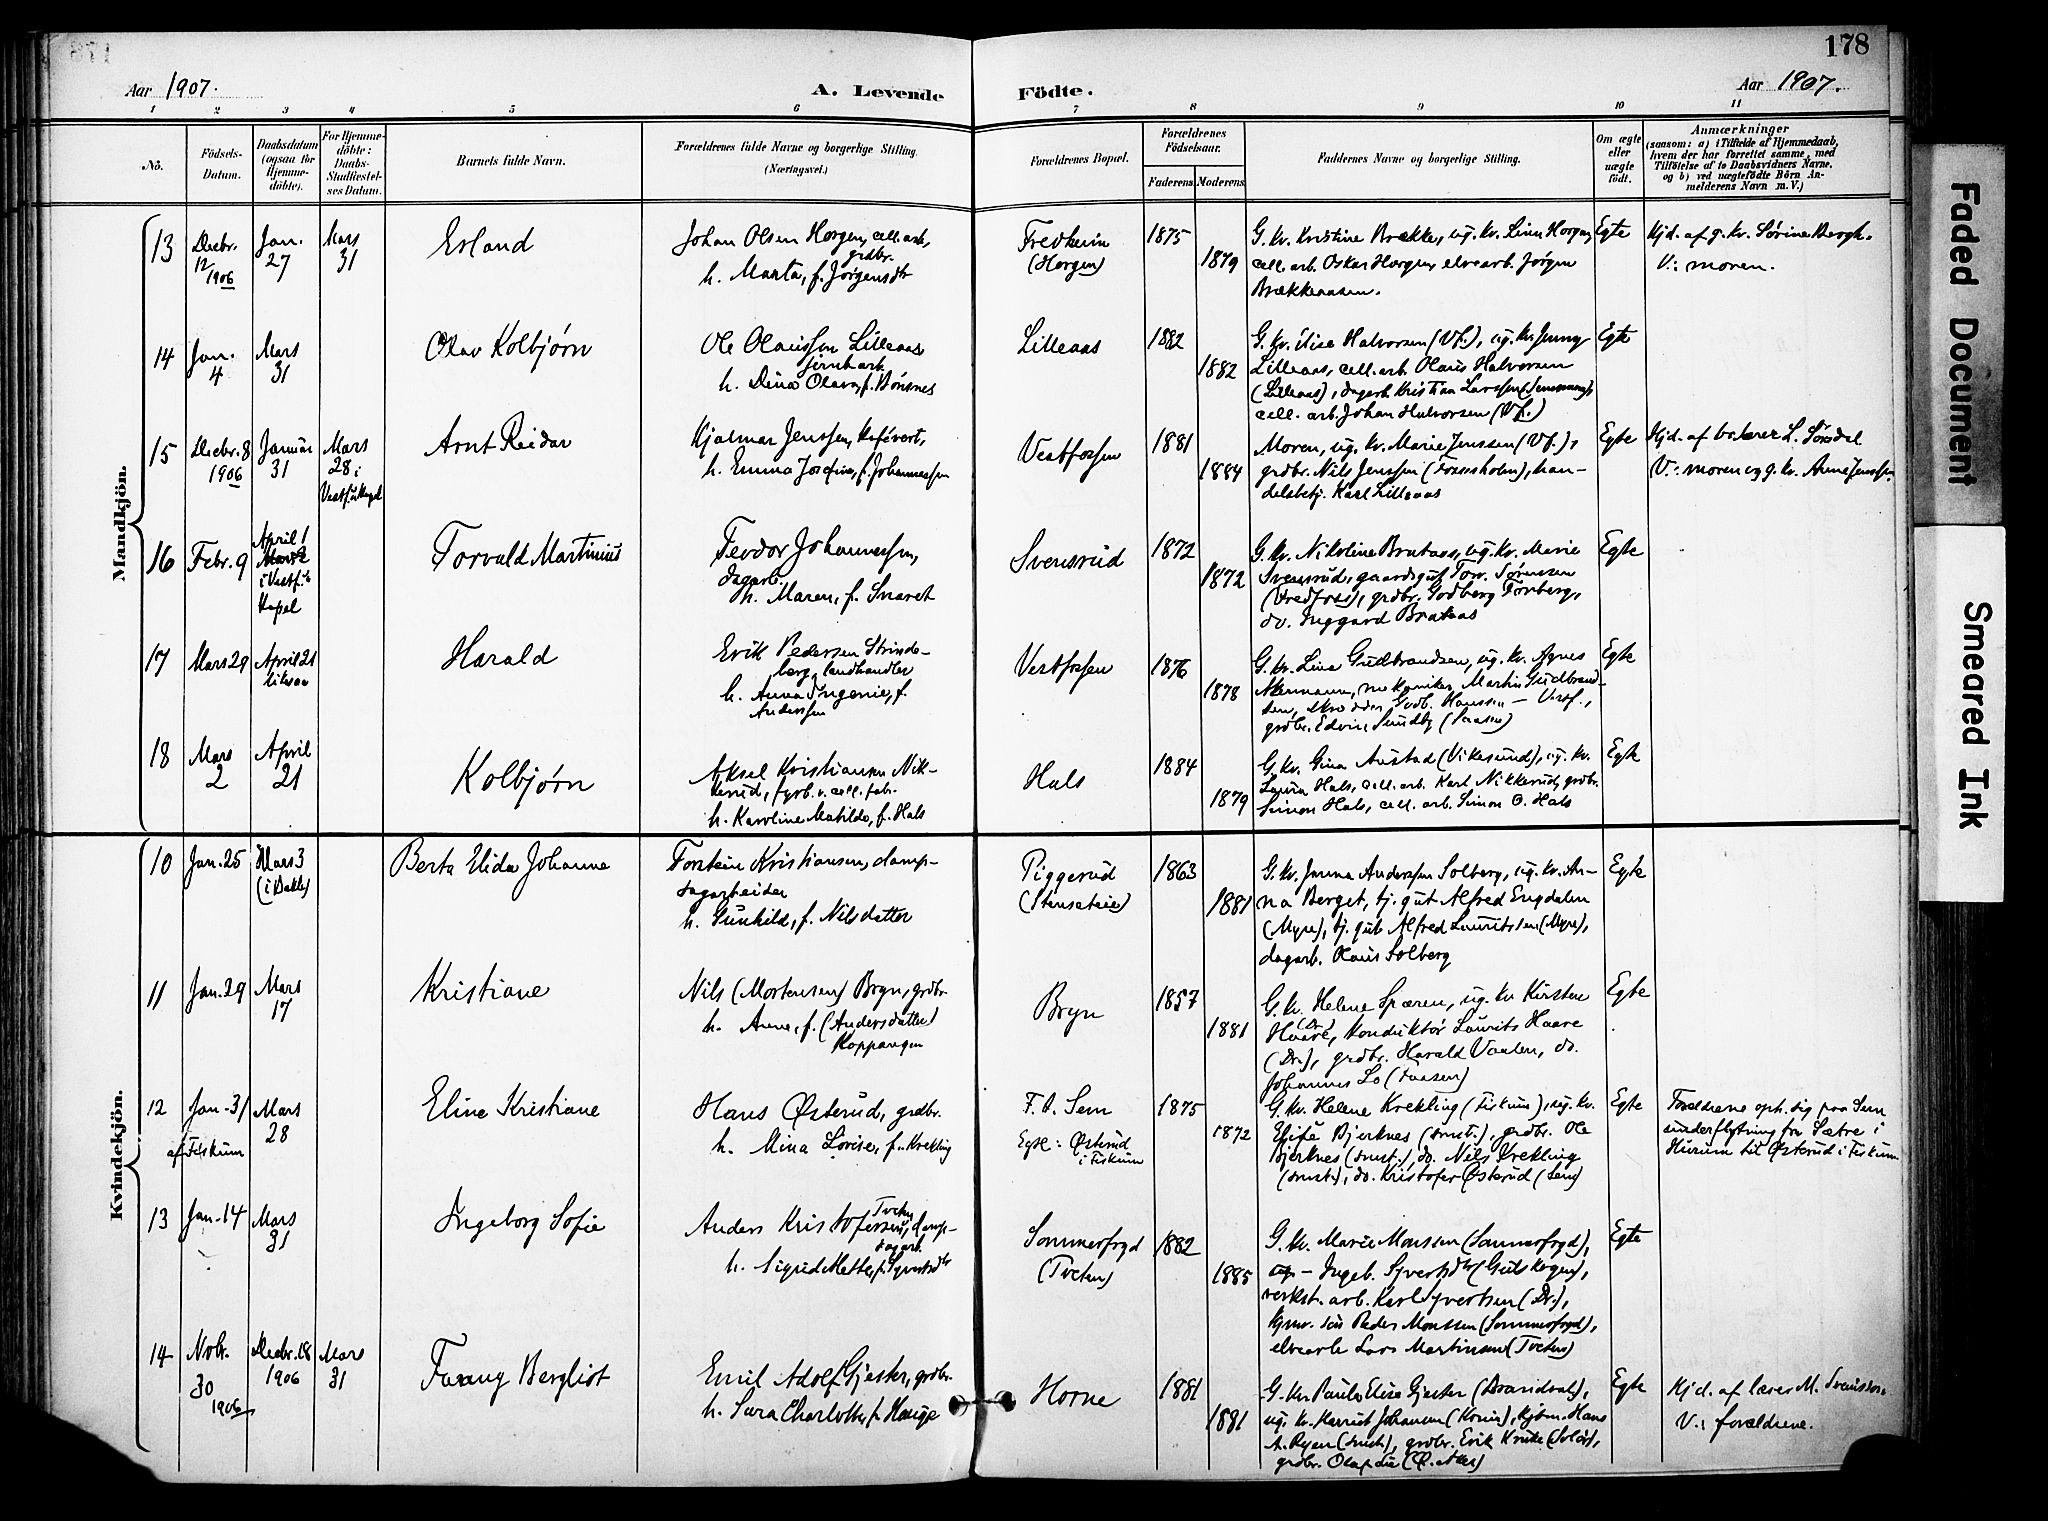 178
Aar 1907.
A. Levende Födte.
Aar 1907.
1 2 3 4 5 6 7 8 9 10 11
No.
Födsels-Datum.
Daabsdatum (ogsaa for Hjemme-döbte).
For Hjemme-döbte: Daabs-Stadfæstel-ses Datum.
Barnets fulde Navn.
Forældrenes fulde Navne og borgerlige Stilling.
(Næringsvei.)
Forældrenes Bopæl.
Forældrenes Födselsaar.
Faderens. Moderens.
Faddernes Navne og borgerlige Stilling.
Om ægte eller uægte födt.
Anmærkninger
(saasom: a) i Tilfælde af Hjemmedaab, hvem der har forrettet samme, med Tilföielse af to Daabsvidners Navne. og b) ved uægtefödte Börn An-melderens Navn m. V.)
Mandkjön.
13 Decbr. 12 1906
Jan. 27
Mars 31
Erland
Johan Olsen Horgen, cell. arb., grdbr.
h. Marta, f. Jørgensdtr
Fredheim
(Horgen)
1875
1879
G. kv. Kristine Brække, ug. kv. Lina Horgen,
cell. arb. Oskar Horgen, elvearb. Jørgen
Brækkeaasen.
Egte
Kjd. af g. kv. Sørine Bergh.
V.: moren.
14 Jan. 4
Mars 31
Olav Kolbjørn
Ole Olaussen Lilleaas
jernb. arb.
h. Dina Olava, f. Bønsnes
Lilleaas
1882
1882
G. kv. Elise Halvorsen (Vf.), ug. kv. Jenny
Lilleaas, cell. arb. Olaus Halvorsen
(Lilleaas), dagarb. Kristian Larssen
cell. arb. Johan Halvorsen (Vf.)
Egte
15 Decbr. 8 1906
Januar 31
Mars 28 i
Arnt Reidar
Hjalmar Jenssen, kafévert,
h. Emma Josefine, f. Johannessen
Vestfossen
1881
1884
Moren, ug. kv. Marie Jenssen (Vf.),
grdbr. Nils Jenssen (Fossesholm), han-
delsbetj. Karl Lilleaas
Egte
Hjd. af bokerer L. Sørsdal
V.: moren og g. kv. Anna Jenssen.
16 Febr. 9
April 1
i Vestf.
Kapel
Torvald Martinius
Teodor Johannessen,
dagarb.,
h. Maren, f. Snaret
Svensrud
1872
1872
G. kv. Nikoline Brataas, ug. kv. Marie
Svensrud, gaardsgut Torv. Sørensen
(Vredfoss), grdbr. Godberg Fonberg,
do. Inggard Brataas
Egte
17 Mars 29
April 21
Harald
Erik Pedersen Strinde-
berg, landhandler
h. Anna Ingenie, f.
Anderssen
Vestfossen
1876
1878
G. kv. Lina Gudbrandsen, ug. kv. Agnes
Akermann, mekaniker Martin Gudbrand-
sen, skrædder Gudb. Hanssen – Vestf.,
grdbr. Edvin Sundby (Faasen)
Egte
18 Mars 2
April 21
Kolbjørn
Aksel Kristiansen Nik-
kerud, fyrb. v. cell. fabr.
h. Karoline Matilde, f. Hals
Hals
1884
1879
G. kv. Gina Austad (Vikesund), ug. kv.
Laura Hals, cell. arb. Karl Nikkerud, grdbr.
Simon Hals, cell. arb. Simon O. Hals
Egte
Kvindekjön.
10 Jan. 25
Mars 3
(i Bakke)
Berta Elida Johanne
Torstein Kristiansen, damp-
sagarbeider
h. Gunhild, f. Nilsdatter
Piggerud
(Stenseteie)
1863
1881
G. kv. Janna Anderssen Solberg, ug. kv. An-
na Berget, tj. gut Alfred Engdalen
(Myre), tj. gut Alfred Lauritssen (Myre),
dagarb. Olaus Solberg
Egte
11 Jan. 29
Mars 17
Kristiane
Nils (Mortensen) Bryn, grdbr.
h. Anne, f. (Andersdatter)
Koppangen
Bryn
1857
1881
G. kv. Helene Spæren, ug. kv. Kirsten
Haare (Dr.), konduktør Laurits Haare
(Dr.), grdbr. Harald Vaalen, do.
Johannes Lo (Faasen)
Egte
12 Jan. 31
af Fiskum
Mars 28
Eline Kristiane
Hans Østerud, grdbr.
h. Mina Lovise, f. Krekling
F. t. Sem
Egtl.: Østerud
i Fiskum
1875
1872
G. kv. Helene Krekling (Fiskum), ug. kv.
Elise Bjerknes (smst.), grdbr. Ole
Bjerknes (smst.), do. Nils Krekling
(smst.), do. Kristofer Østerud (Sem)
Egte
Forældrene oph. sig paa Sem
under flytning fra Sætre i
Hurum til Østerud i Fiskum
13 Jan. 14
Mars 31
Ingeborg Sofie
Anders Kristofersen Tveten, damp-
sagarb.
h. Sigrid Mette, f. Syvertsdtr
Sommerfryd
(Tveten)
1882
1885
G. kv. Marie Monssen (Sommerfryd),
– Ingeb. Syvertsdtr (Gulskogen),
verkst. arb. Karl Syvertsen (Dr.),
Peder Monssen (Sommerfryd),
elvearb. Lars Martinsen (Tveten)
Egte
14 Novbr. 30 1906
Decbr. 18 1906
Mars 31
Fanny Bergliot
Emil Adolf Gjester, grdbr.
h. Sara Charlotte, f. Hauge
Horne
1881
1881
G. kv. Paula Elise Gjester (Brandvold),
ug. kv. Harriet Johansen (Horne), kjøbm. Hans
A. Ryen (smst.), grdbr. Erik Kruke (Solør),
grdbr. Olaf Lie (Ø. Aker)
Egte
Kjd. af lærer M. Svendsen.
V.: forældrene.
Faded Document
Smeared Ink